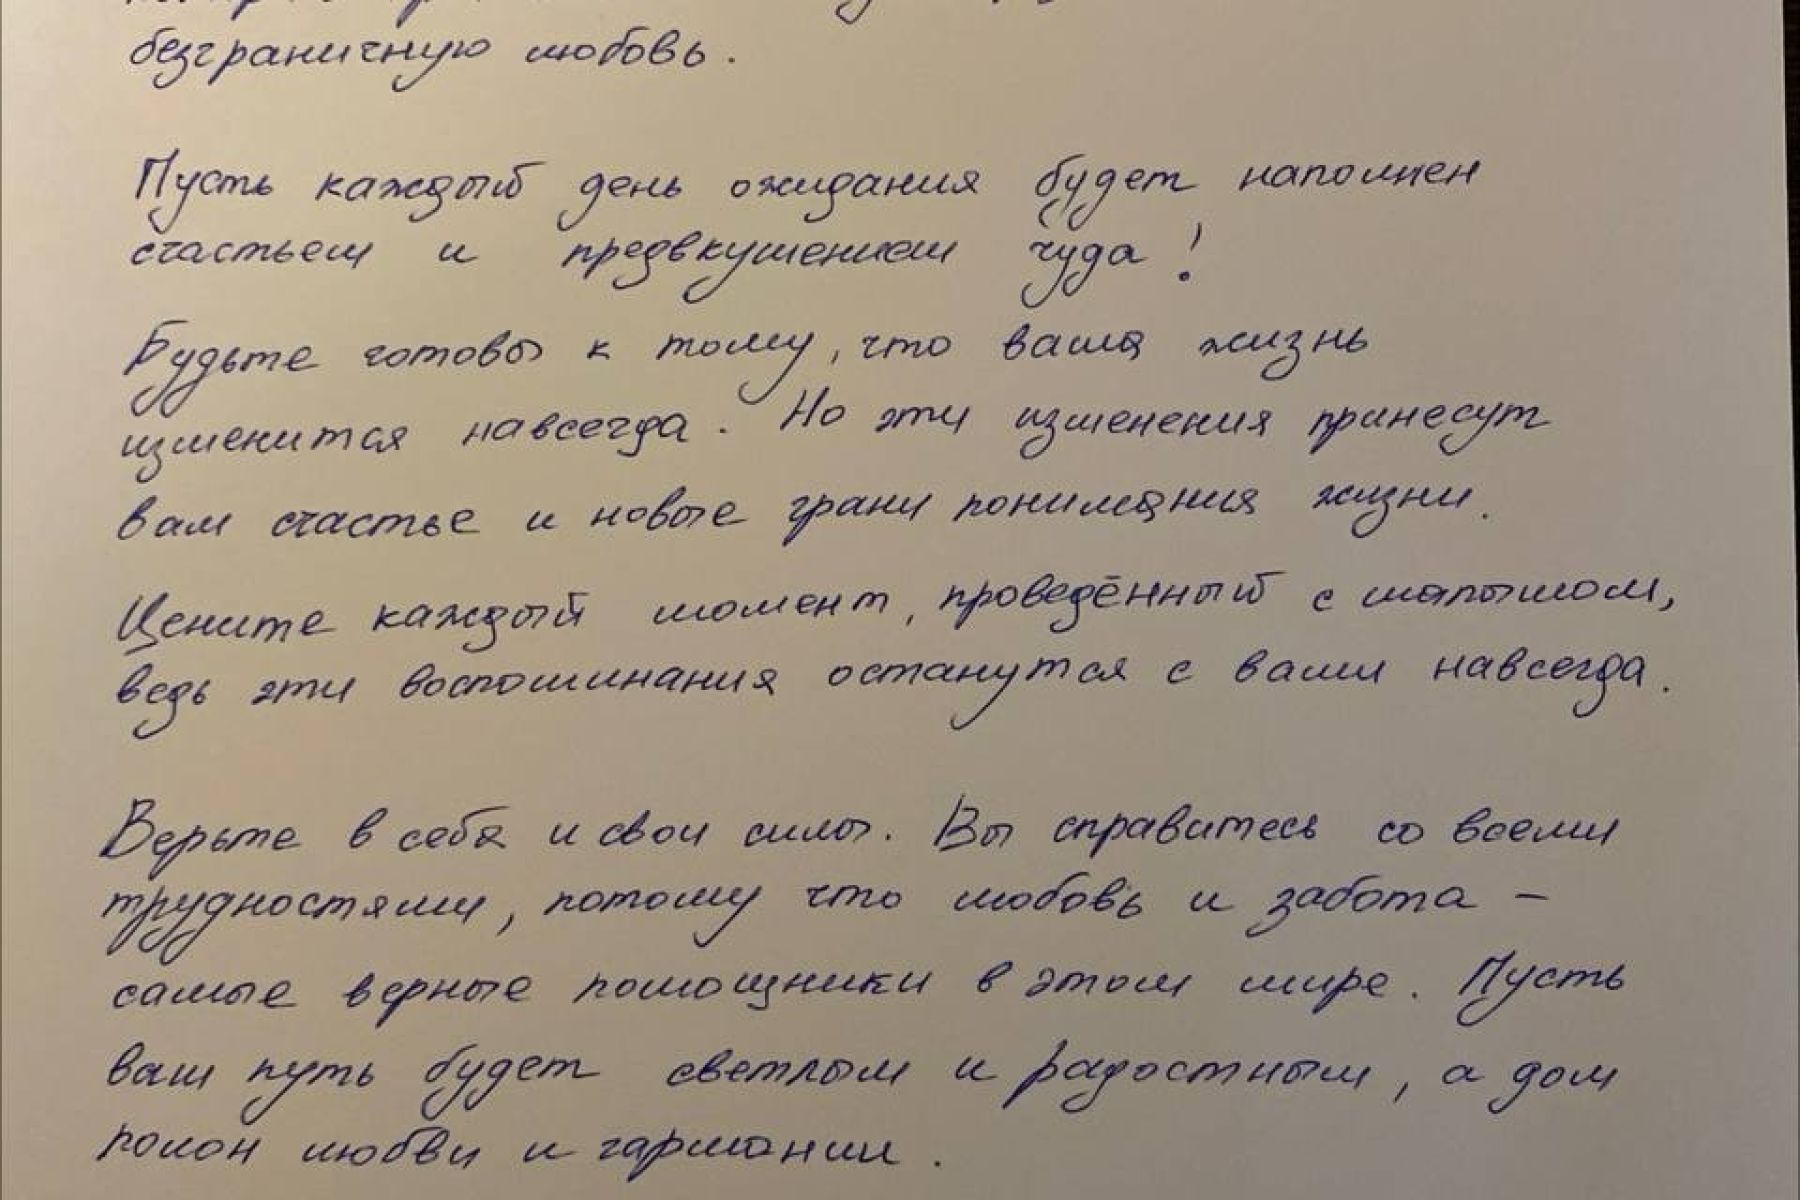 безграничную любовь.
Пусть каждый день ожидания будет наполнен
счастьем и предвкушением чуда!
Будьте готовы к тому, что ваша жизнь
изменится навсегда. Но эти изменения принесут
вам счастье и новые грани понимания жизни.
Цените каждый момент, проведённый с малышом,
ведь эти воспоминания останутся с вами навсегда.
Верьте в себя и свои силы. Вы справитесь со всеми
трудностями, потому что любовь и забота –
самые верные помощники в этом мире. Пусть
ваш путь будет светлым и радостным, а дом
полон любви и гармонии.